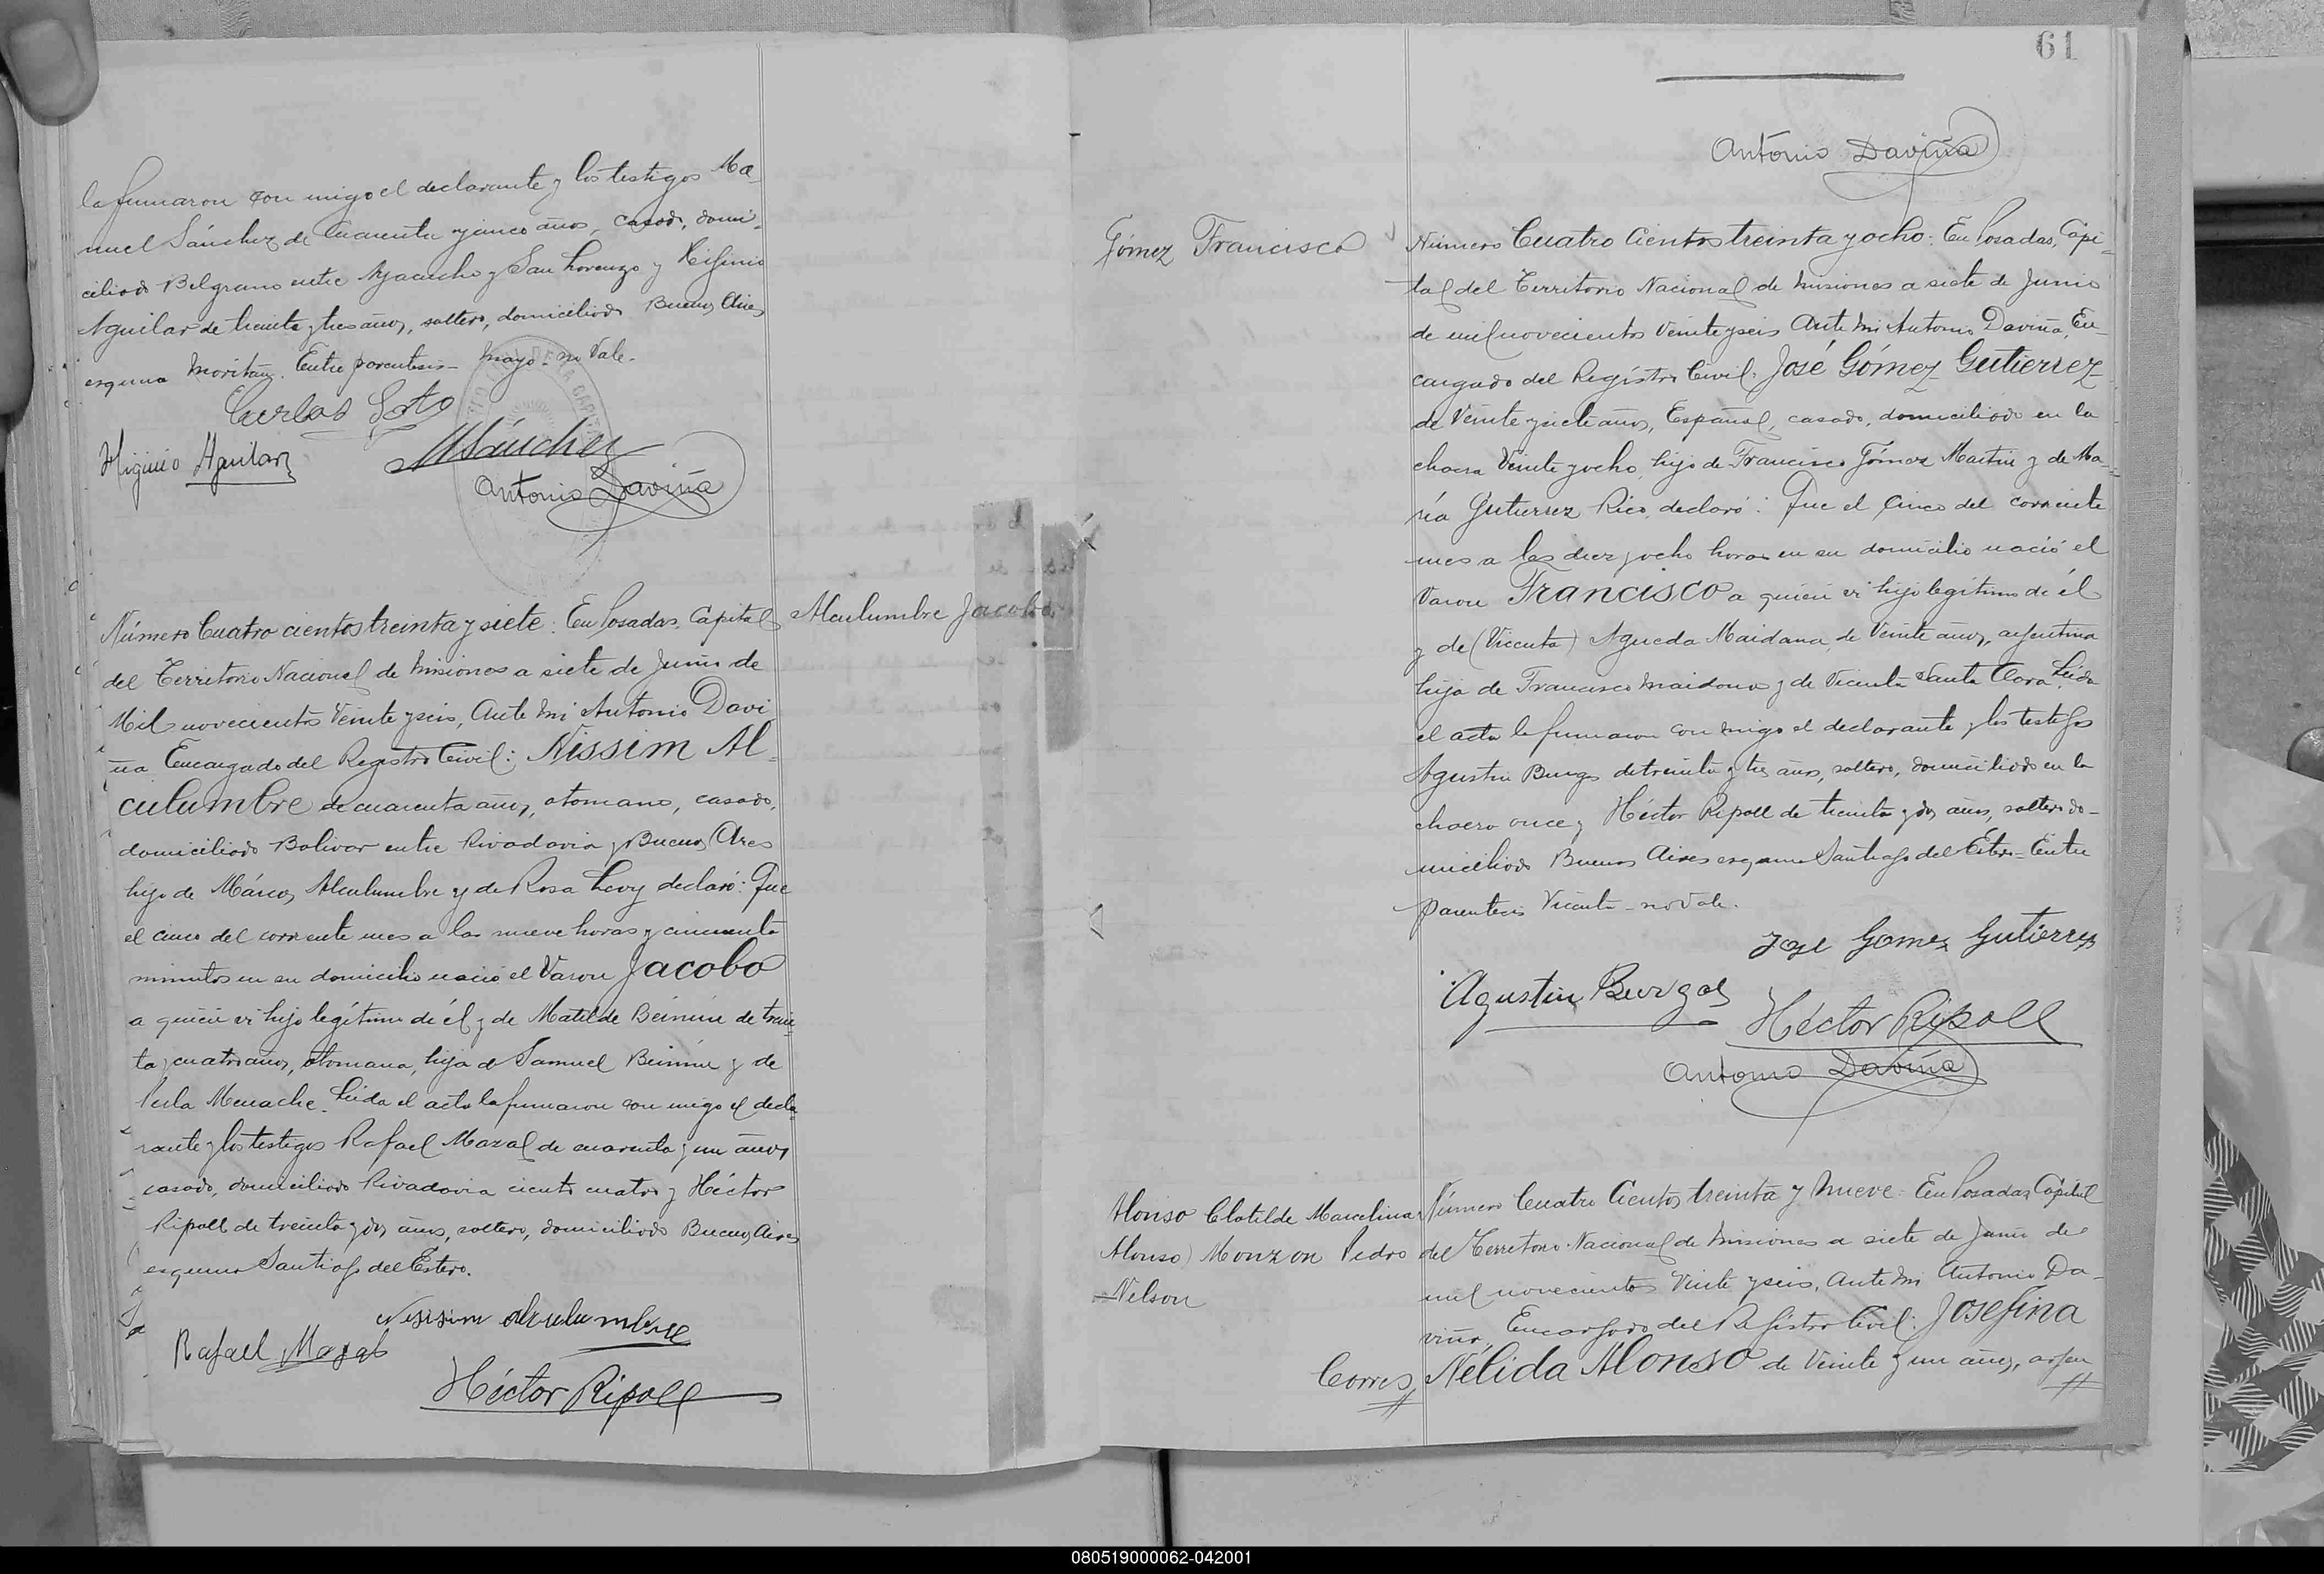 la firmaron con migo el declarante y los testigos Ma-
nuel Sánchez de cuarenta y cinco años, casado, domi-
ciliado Belgrano entre Ayacucho y San Lorenzo y Higinio
Aguilar de treinta y tres años, soltero, domiciliado Buenos Aires
esquina Moritán. Entre parentesis - mayo - no Vale.
Carlos Soto
Higinio Aguilar
MSánchez
Antonio Daviña
Número Cuatro cientos treinta y siete: En Posadas, Capital
del Territorio Nacional de Misiones a siete de Junio de
Mil novecientos Veinte y seis, Ante Mi Antonio Davi
ña Encargado del Registro Civil: Nissim Al-
culumbre de cuarenta años, otomano, casado,
domiciliado Bolivar entre Rivadavia y Buenos Aires
hijo de Márcos Alculumbre y de Rosa Levy declaró: Que
el cinco del corriente mes a las nueve horas y cincuenta
minutos en su domicilio nació el Varon Jacobo
a quien vi hijo legítimo de él y de Matilde Beinine de trein-
ta y cuatro años, otomana, hija de Samuel Beinine y de
Perla Menache. Leida el acta la firmaron con migo el decla-
rante y los testigos Rafael Mazal de cuarenta y un años
casado, domiciliado Rivadavia ciento cuatro y Héctor
Ripoll de treinta y dos años, soltero, domiciliado Buenos Aires
esquina Santiago del Estero.
Nissim Alculumbre
Rafael Mazal
Héctor Ripoll
Alculumbre Jacobo
61
Antonio Daviña
Gómez Francisco
Número Cuatro Cientos treinta y ocho: En Posadas, Capi-
tal del Territorio Nacional de Misiones a siete de Junio
de mil novecientos Veinte y seis Ante Mi Antonio Daviña, En-
cargado del Registro Civil: José Gómez Gutierrez
de Veinte y siete años, Español, casado, domiciliado en la
chacra Veinte y ocho, hijo de Francisco Gómez Martin y de Ma-
ría Gutierrez Rico, declaró: Que el cinco del corriente
mes a las diez y ocho horas en su domicilio nació el
Varon Francisco a quien vi hijo legítimo de él
y de (Vicenta) Agueda Maidana, de Veinte años, argentina
hija de Francisco Maidana y de Vicenta Santa Clara. Leida
el acta la firmaron con migo el declarante y los testigos
Agustin Burgos de treinta y tres años, soltero, domiciliado en la
chacra once y Héctor Ripoll de treinta y dos años, soltero do-
miciliado Buenos Aires esquina Santiago del Estero - Entre
parentesis Vicenta - no Vale.
Jose Gomez Gutierrez
Agustin Burgos
Héctor Ripoll
Antonio Daviña
Alonso Clotilde Marcelina
Alonso) Monzon Pedro
Nelson
Número Cuatro Cientos treinta y Nueve: En Posadas, Capital
del Territorio Nacional de Misiones a siete de Junio de
mil novecientos Veinte y seis, Ante Mi Antonio Da-
viña, Encargado del Registro Civil: Josefina
Nélida Alonso de Veinte y un años, argen
Corres